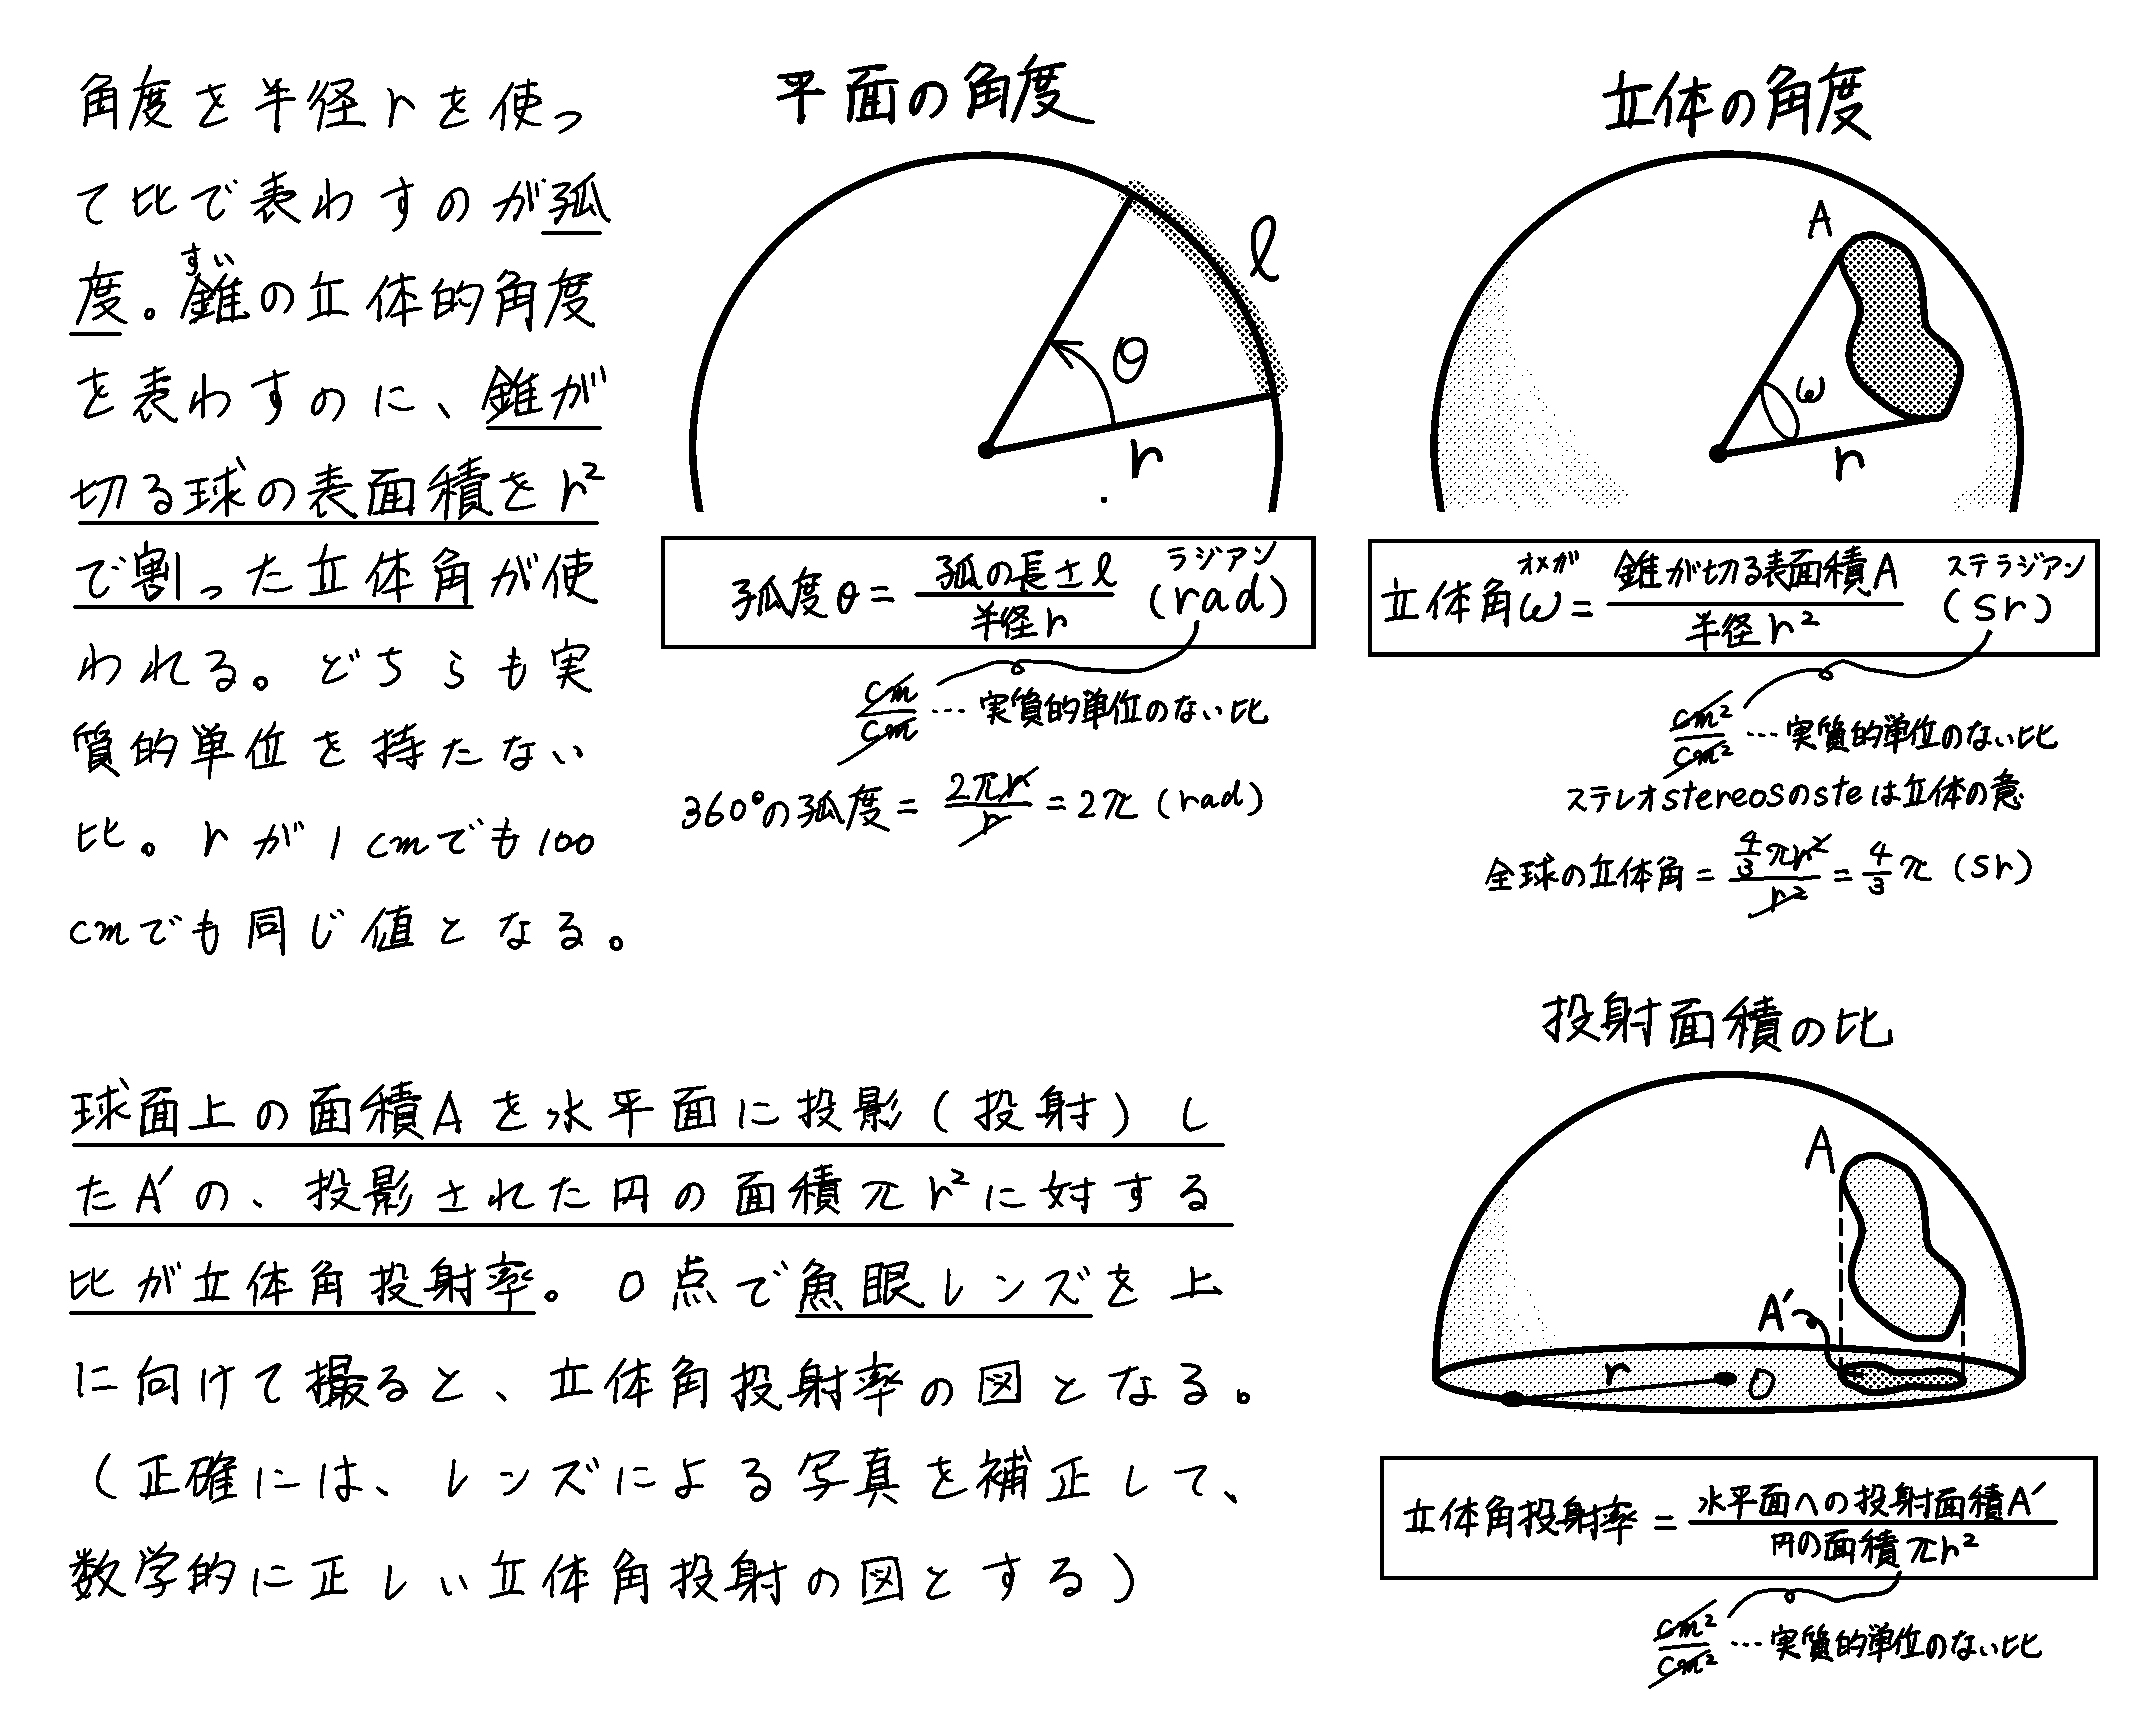 角度を半径rを使っ
て比で表わすのが弧
度。錐の立体的角度
すい
を表わすのに、錐が
切る球の表面積をr²
で割った立体角が使
われる。どちらも実
質的単位を持たない
比。rが1cmでも100
cmでも同じ値となる。
平面の角度
l
θ
r
弧度θ = 弧の長さl / 半径r (rad)
ラジアン
cm/cm … 実質的単位のない比
360°の弧度 = 2πr/r = 2π (rad)
立体の角度
A
ω
r
立体角ω = 錐が切る表面積A / 半径r² (sr)
オメガ
ステラジアン
cm²/cm² … 実質的単位のない比
ステレオstereosのsteは立体の意
全球の立体角 = 4/3πr²/r² = 4/3π (sr)
球面上の面積Aを水平面に投影(投射)し
たA′の、投影された円の面積πr²に対する
比が立体角投射率。O点で魚眼レンズを上
に向けて撮ると、立体角投射率の図となる。
(正確には、レンズによる写真を補正して、
数学的に正しい立体角投射の図とする)
投射面積の比
A
A′
r
O
立体角投射率 = 水平面への投射面積A′ / 円の面積πr²
cm²/cm² … 実質的単位のない比